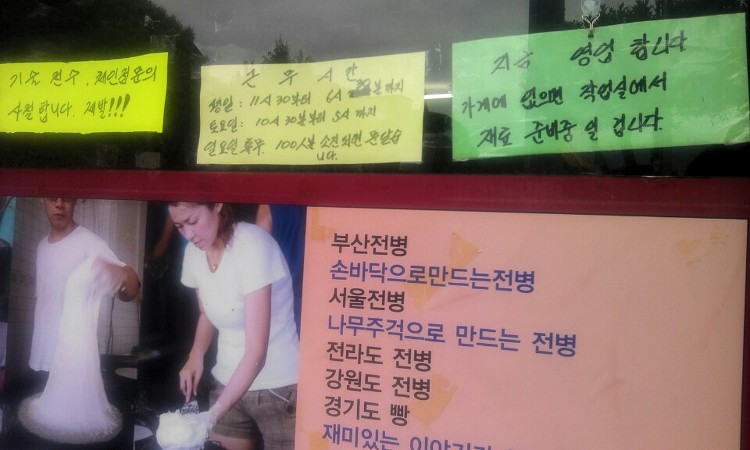 기술 전수, 체인점문의
사절합니다. 제발!!!
근무시간
평일: 11시 30부터 6시 분까지
토요일: 10시 30분부터 5시 까지
일요일 휴무. 100인분 소진되면 문닫습
니다.
지금 영업합니다
가게에 없으면 작업실에서
재료 준비중 일 겁니다.
부산전병
손바닥으로만드는전병
서울전병
나무주걱으로 만드는 전병
전라도 전병
강원도 전병
경기도 빵
재미있는